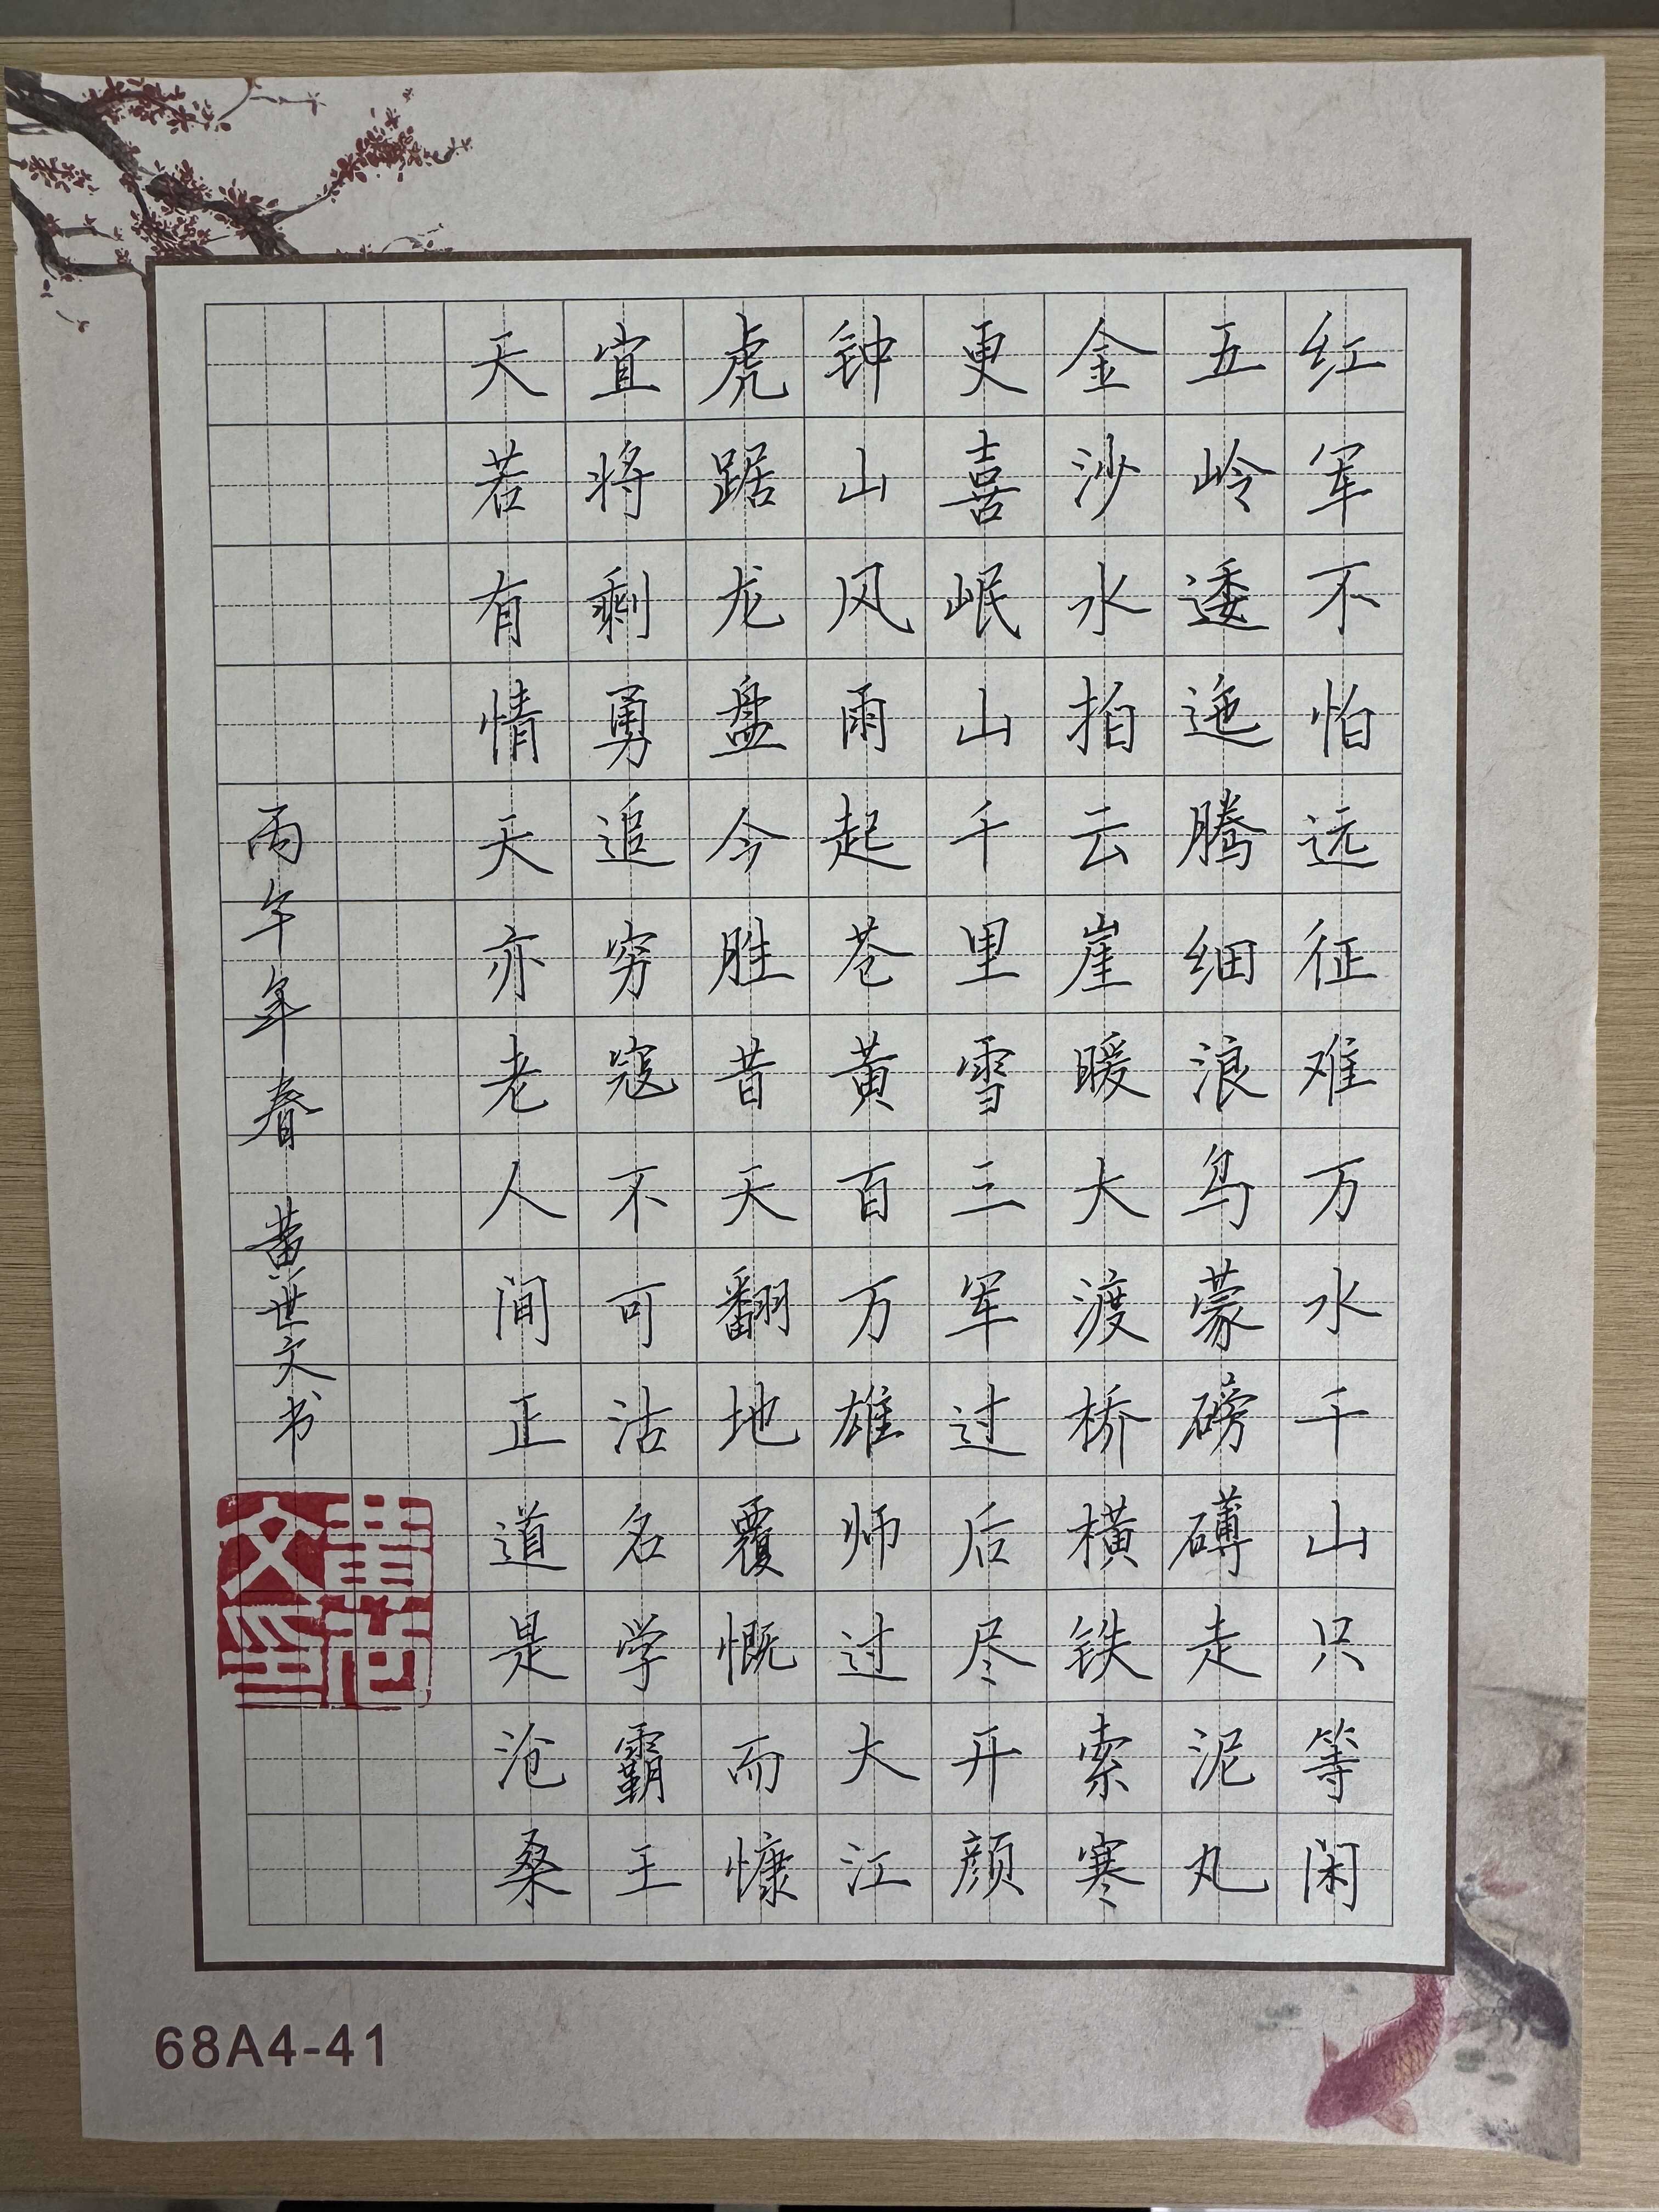 红军不怕远征难万水千山只等闲
五岭逶迤腾细浪乌蒙磅礴走泥丸
金沙水拍云崖暖大渡桥横铁索寒
更喜岷山千里雪三军过后尽开颜
钟山风雨起苍黄百万雄师过大江
虎踞龙盘今胜昔天翻地覆慨而慷
宜将剩勇追穷寇不可沽名学霸王
天若有情天亦老人间正道是沧桑
丙午年春 黄世文书
黄世文印
68A4-41